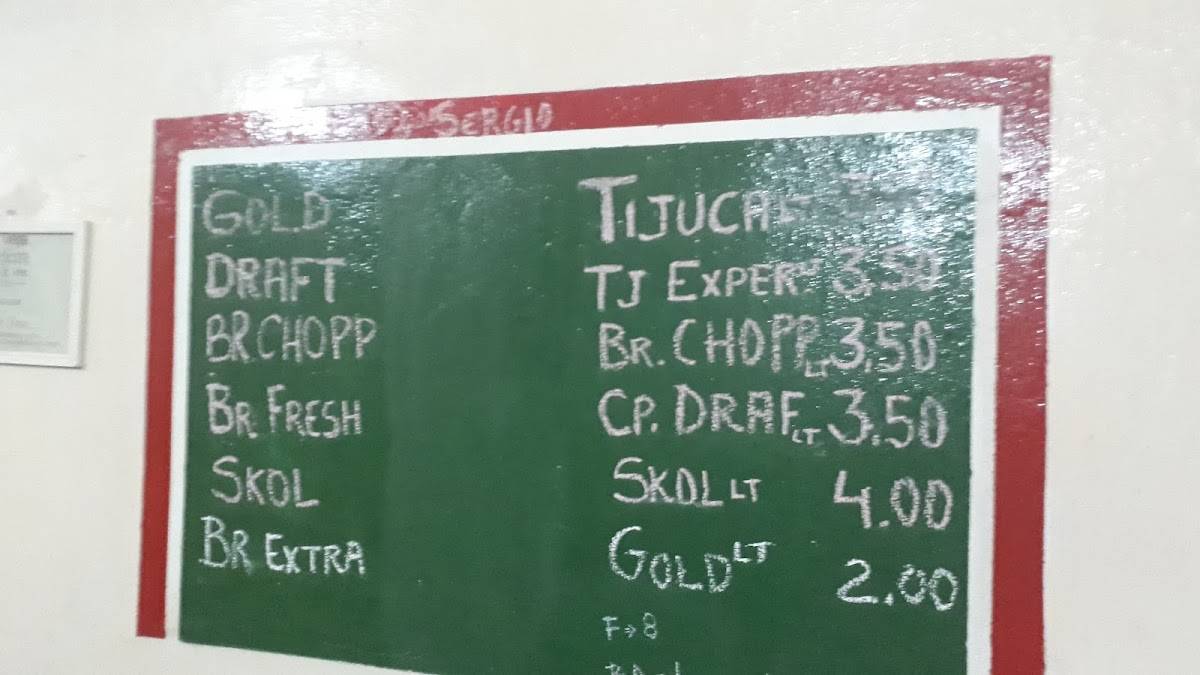 SERGIO
GOLD
DRAFT
BR.CHOPP
BR. FRESH
SKOL
BR EXTRA
TIJUCA LT
TJ EXPER. 3,50
BR. CHOPP LT 3,50
CP. DRAF LT 3.50
SKOL LT 4.00
GOLD LT 2.00
F→8